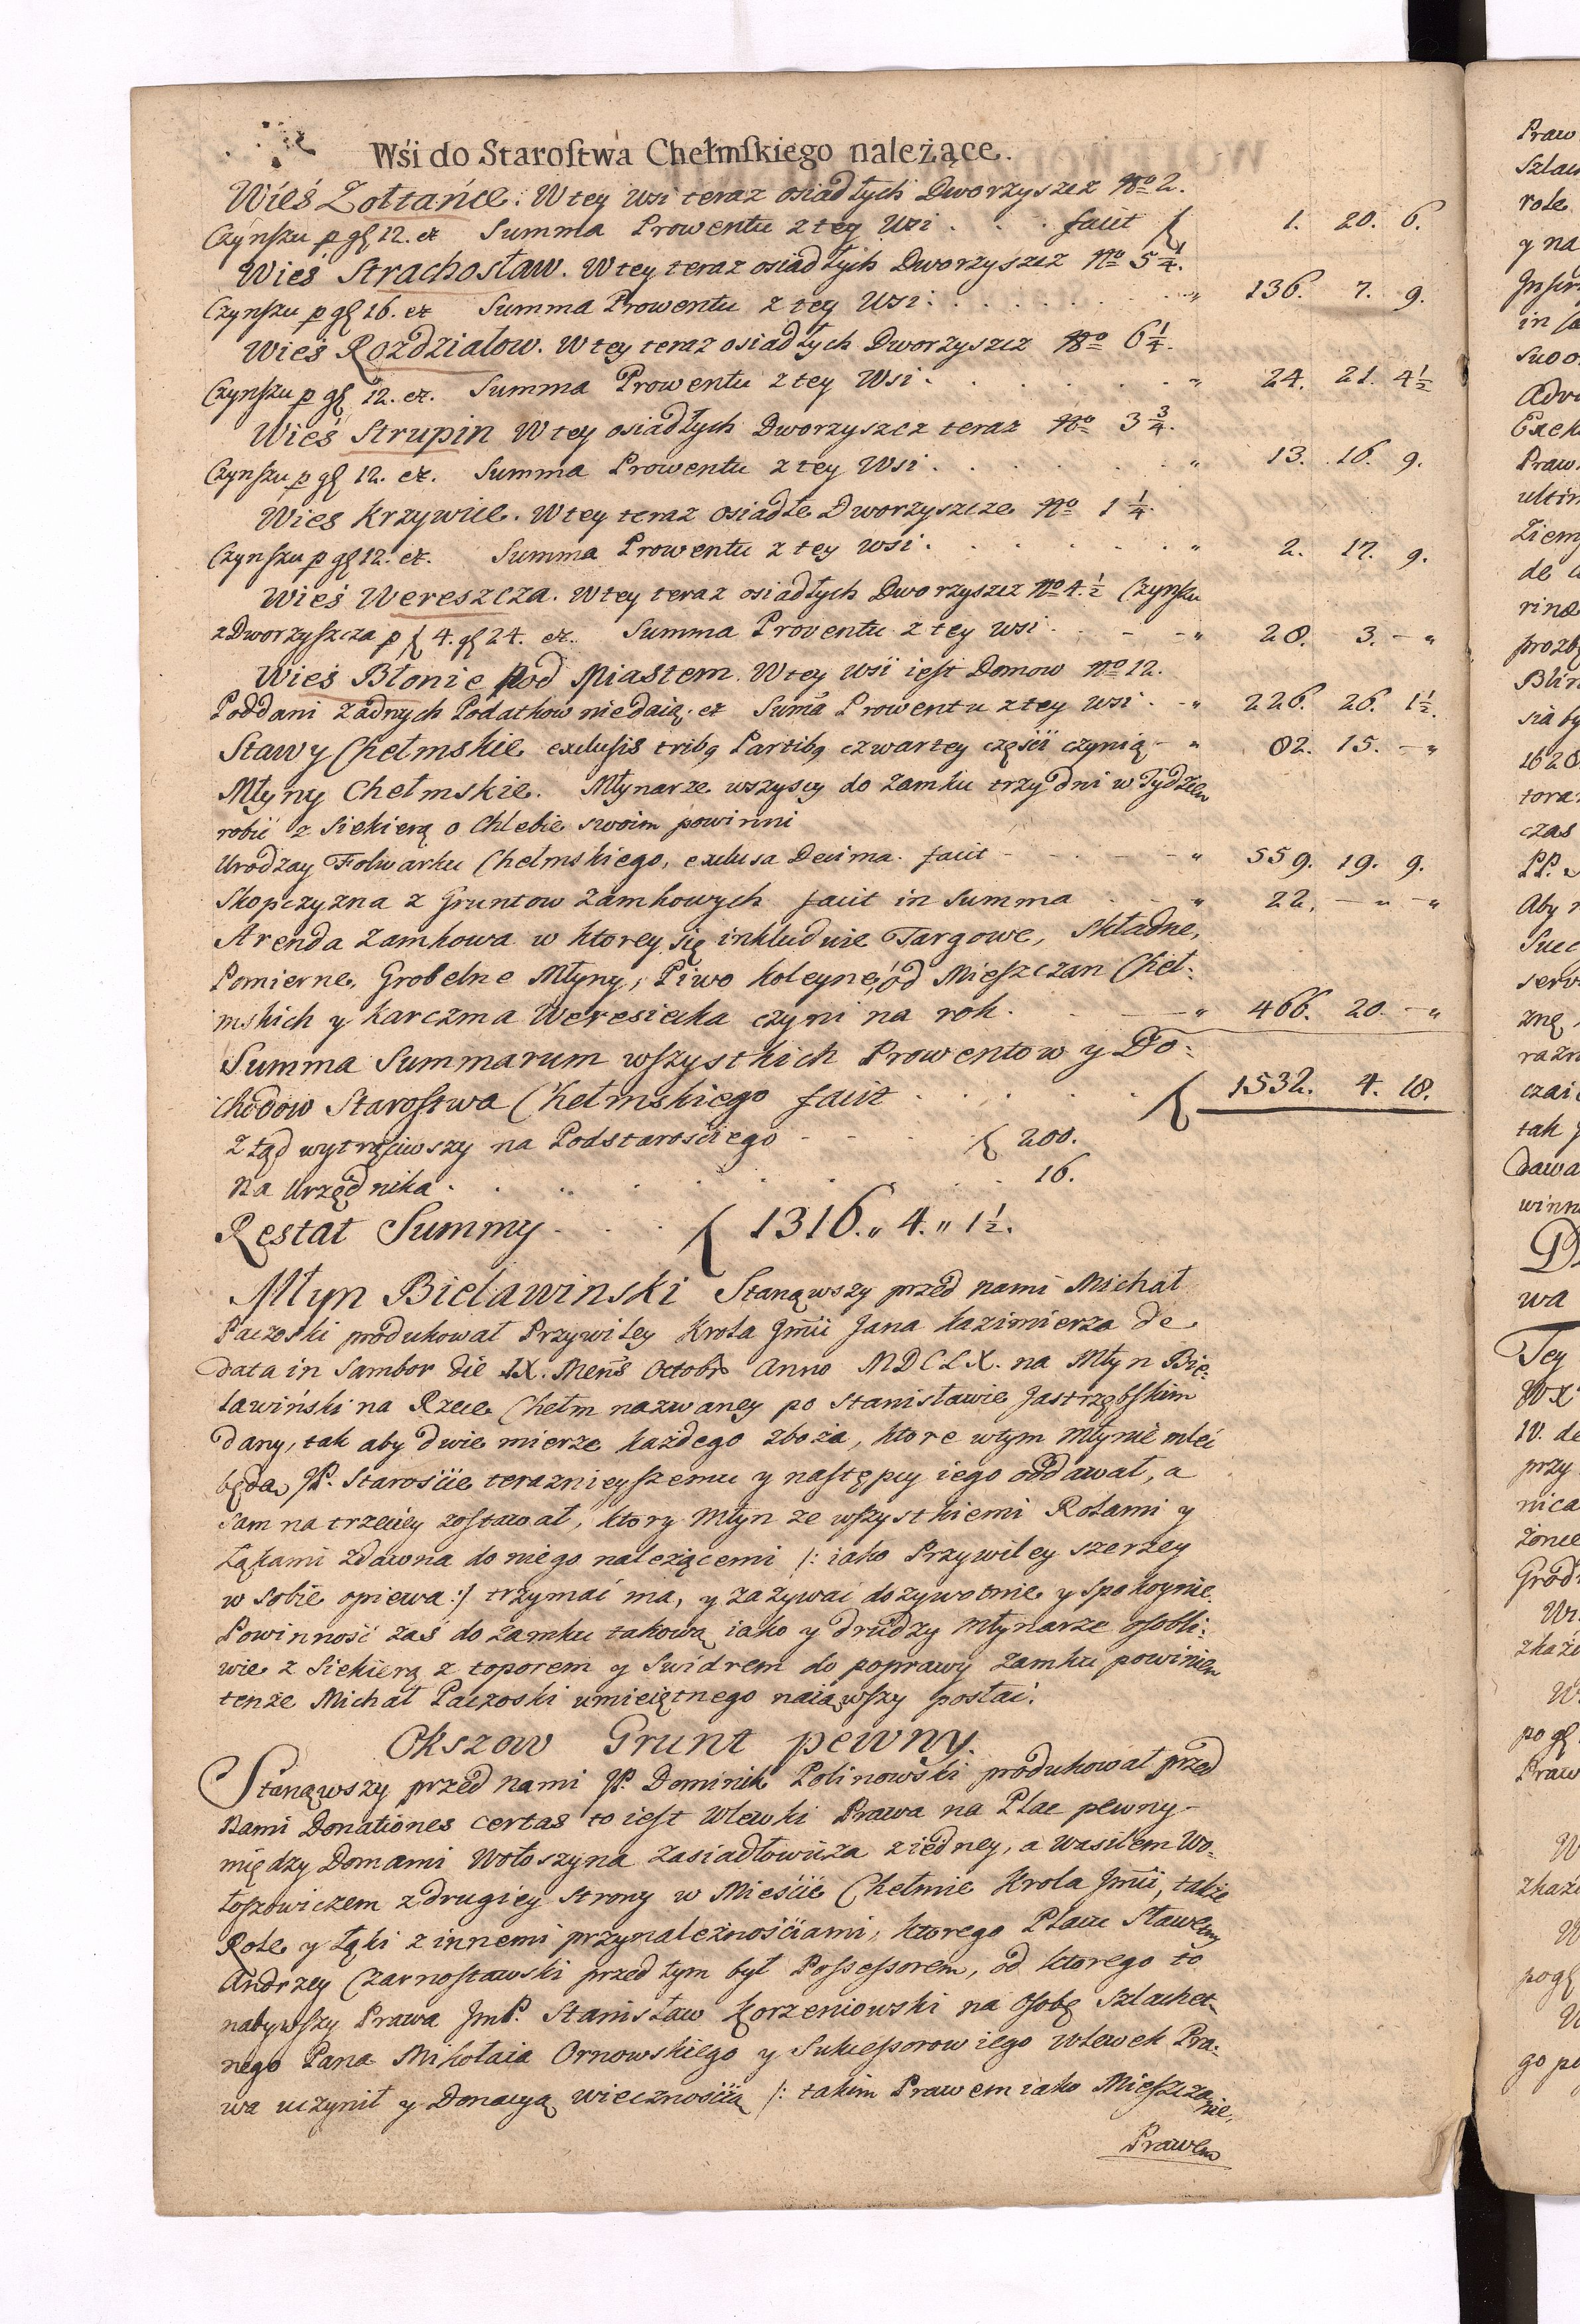 Wśi do Staroſtwa Chełmſkiego należące.
Wieś Żołtańce. W tey wsi teraz osiadłych Dworzyszcz Nro 2.
Czynszu p gſ 12. et Summa Prowentu z tey wsi . . . facit ſ 1. 20. 6.
Wieś Strachosław. W tey teraz osiadłych Dworzyszcz Nro 5 1/4.
Czynſzu p gſ 16. et Summa Prowentu z tey Wsi . . . . . . " 136. 7. 9.
Wieś Rozdziałow. W tey teraz osiadłych Dworzyszcz Nro 6 1/4.
Czynſzu p gſ 12. et. Summa Prowentu z tey Wsi . . . . . . " 24. 21. 4 1/2
Wieś Strupin W tey osiadłych Dworzyszcz teraz Nro 3 3/4.
Czynſzu p gſ 12. et. Summa Prowentu z tey Wsi . . . . . . " 13. 16. 9.
Wieś Krzywice. W tey teraz osiadłe Dworzyszcze Nro 1 1/4.
Czynſzu p gſ 12. et. Summa Prowentu z tey wsi . . . . . . " 2. 17. 9.
Wieś Wereszcza. W tey teraz osiadłych Dworzyszcz Nro 4. 1/2 Czynſzu
z Dworzyſzcza p ſ 4. gſ 24. et. Summa Proventu z tey wsi . . - - " 28. 3. - "
Wieś Błonie pod Miastem. W tey wsi ieſt Domow Nro 12.
Poddani żadnych Podatkow niedaią. et Suma Prowentu z tey wsi . - " 226. 26. 1 1/2.
Stawy Chełmskie exclusis tribq Partibq czwartey częśći czynią - " 82. 15. - "
Młyny Chełmskie. Młynarze wszyscy do zamku trzy dni w Tydzień
robić z Siekierą o Chlebie swoim powinni
Urodzay Folwarku Chełmskiego, exclusa Decima. facit - - - - " 559. 19. 9.
Skopczyzna z Gruntow Zamkowych facit in Summa . - - " 22. - " - "
Arenda Zamkowa w ktorey się inkluduie Targowe, Składne,
Pomierne, Grobelne Młyny, Piwo koleyne, od Mieſzczan Cheł:
mskich y Karczma Weresiecka czyni na rok . . - " 466. 20. - "
Summa Summarum wſzystkich Prowentow y Do:
chodow Staroſtwa Chełmskiego facit . . . . . ſ 1532. 4. 18.
z tąd wytrąciwszy na Podstarośćiego - - - ſ 200.
na Urzędnika . . . . . . . . 16.
Restat Summy - . . . ſ 1316. " 4. " 1 1/2.
Młyn Bieławinski Stanąwszy przed nami Michał
Paczoski produkował Przywiley Krola Jmći Jana Kazimierza de
data in Sambor die IX. Mens Octobr Anno MDCLX. na Młyn Bie:
ławiński na Rzece Chełm nazwaney po Stanisławie Jastrzębſkim
dany, tak aby dwie mierze każdego zboża, ktore w tym Młynie mleć
będą, JP. Starośćie teraznieyſzemu y następcy iego oddawał, a
sam na trzeciey zoſtawał, ktory Młyn ze wſzystkiemi Rolami y
Łąkami zdawna do niego należącemi /: iako Przywiley szerzey
w sobie opiewa :/ trzymać ma, y zażywać dożywotnie y spokoynie.
Powinność zaś do zamku takową iako y drudzy Młynarze oſobli:
wie z Siekierą z toporem y Swidrem do poprawy Zamku powinien
tenże Michał Paczoski umieiętnego naiąwſzy posłać.
Okszow Grunt pewny.
Stanąwszy przed nami JP. Dominik Polinowski produkował przed
Nami Donationes certas to ieſt Wlewki Prawa na Plac pewny
między Domami Wołoszyna Zasiadłowicza z iedney, a Wasilem Wo:
łoſzowiczem z drugiey strony w Mieśćie Chełmie Krola Jmći, także
Role y Łąki z innemi przynależnośćiami, ktorego Placu Sławetny
Andrzey Czarnosławski przed tym był Poſſeſſorem, od ktorego to
nabywſzy Prawa JmP. Stanisław Korzeniowski na oſobę Szlachet:
nego Pana Mikołaia Ornowskiego y Sukceſſorow iego wlewek Pra:
wa uczynił y Donacyą wiecznośćią /: takim Prawem iako Mieſzczanie,
Prawem